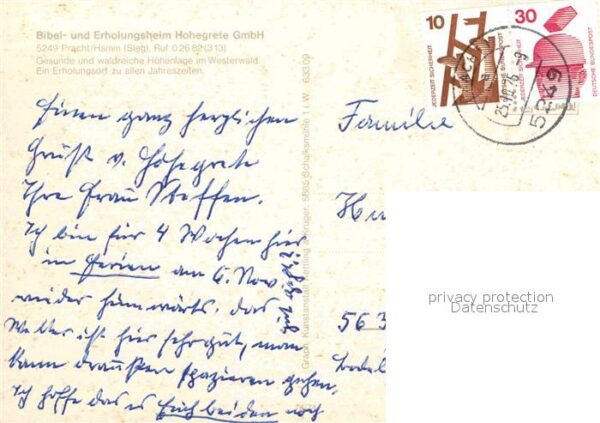 Bibel- und Erholungsheim Hohegrete GmbH
5249 Pracht/Hamm (Sieg), Ruf 0 26 82 (313)
Gesunde und waldreiche Höhenlage im Westerwald
Ein Erholungsort zu allen Jahreszeiten.
10
JEDERZEIT SICHERHEIT
30
JEDERZEIT SICHERHEIT
DEUTSCHE BUNDESPOST
5249
Einen ganz herzlichen
Gruß v. Hohegrete
Ihre Frau Steffen.
Ich bin für 4 Wochen hier
in Ferien am 6. Nov.
wieder heimwärts. das
Wetter ist hier sehr gut, man
kann draußen spazieren gehen.
Ich hoffe das es Euch beiden noch
gut geht?
Familie
563
privacy protection
Datenschutz